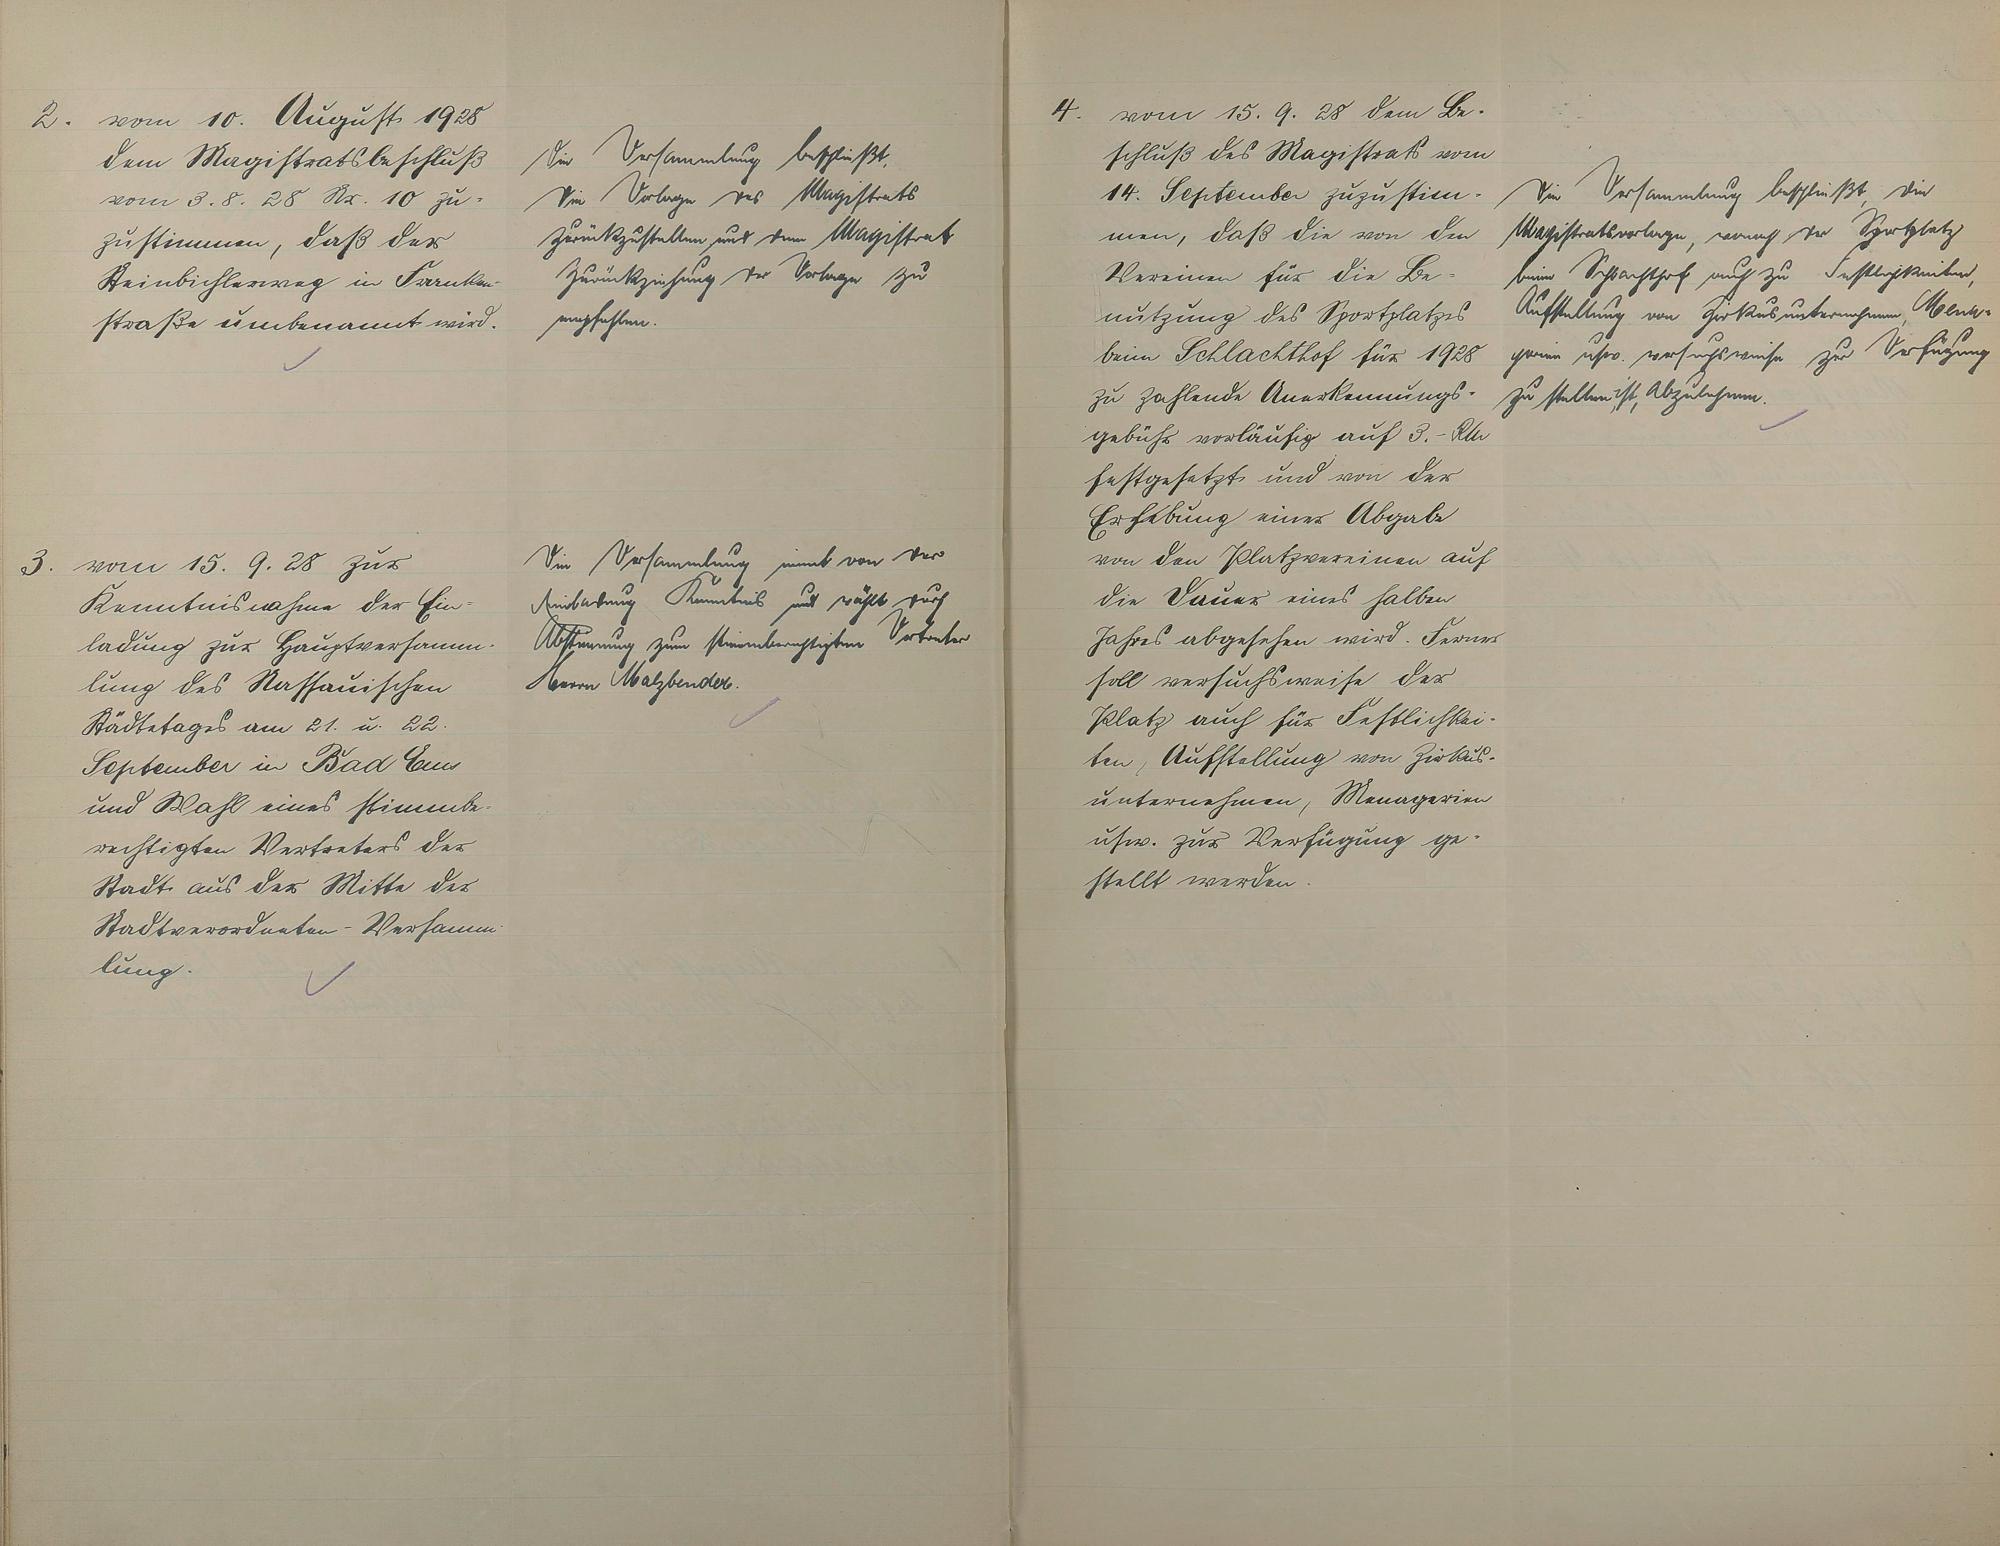 2. vom 10. August 1928
dem Magistratsbeschluß
vom 3. 8. 28 Nr. 10 zu-
zustimmen, daß der
Steinbichlerweg in Franken-
straße umbenannt wird.
Die Versammlung beschließt,
die Vorlage des Magistrats
zurückzustellen und dem Magistrat
Zurückziehung der Vorlage zu
empfehlen.
3. vom 15. 9. 28 zur
Kenntnisnahme der Ein-
ladung zur Hauptversamm-
lung des Nassauischen
Städtetages am 21. u. 22.
September in Bad Ems
und Wahl eines stimmbe-
rechtigten Vertreters der
Stadt aus der Mitte der
Stadtverordneten-Versamm-
lung.
Die Versammlung nimt von der
Einladung Kenntnis und wählt durch
Abstimmung zum stimmberechtigten Vertreter
Herrn Malzbender.
4. vom 15. 9. 28 dem Be-
schluß des Magistrats vom
14. September zuzustim-
men, daß die von den
Vereinen für die Be-
nutzung des Sportplatzes
beim Schlachthof für 1928
zu zahlende Anerkennungs-
gebühr vorläufig auf 3.- RM
festgesetzt und von der
Erhebung einer Abgabe
von den Platzvereinen auf
die Dauer eines halben
Jahres abgesehen wird. Ferner
soll versuchsweise der
Platz auch für Festlichkei-
ten, Aufstellung von Zirkus-
unternehmen, Menagerien
usw. zur Verfügung ge-
stellt werden.
Die Versammlung beschließt, die
Magistratsvorlage, wonach der Sportplatz
beim Schlachthof auch zu Festlichkeiten,
Aufstellung von Zirkusunternehmen, Mena-
gerien usw. versuchsweise zur Verfügung
zu stellen ist, abzulehnen.